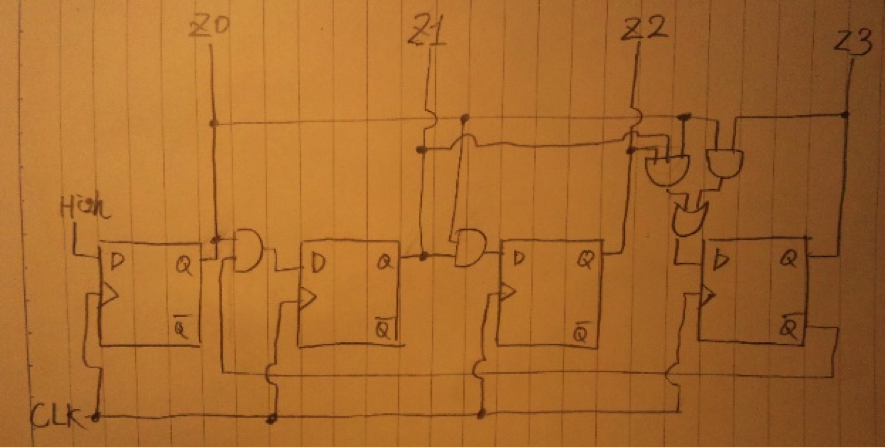 Z0 Z1 Z2 Z3
High
D Q D Q D Q D Q
Q̅ Q̅ Q̅ Q̅
CLK